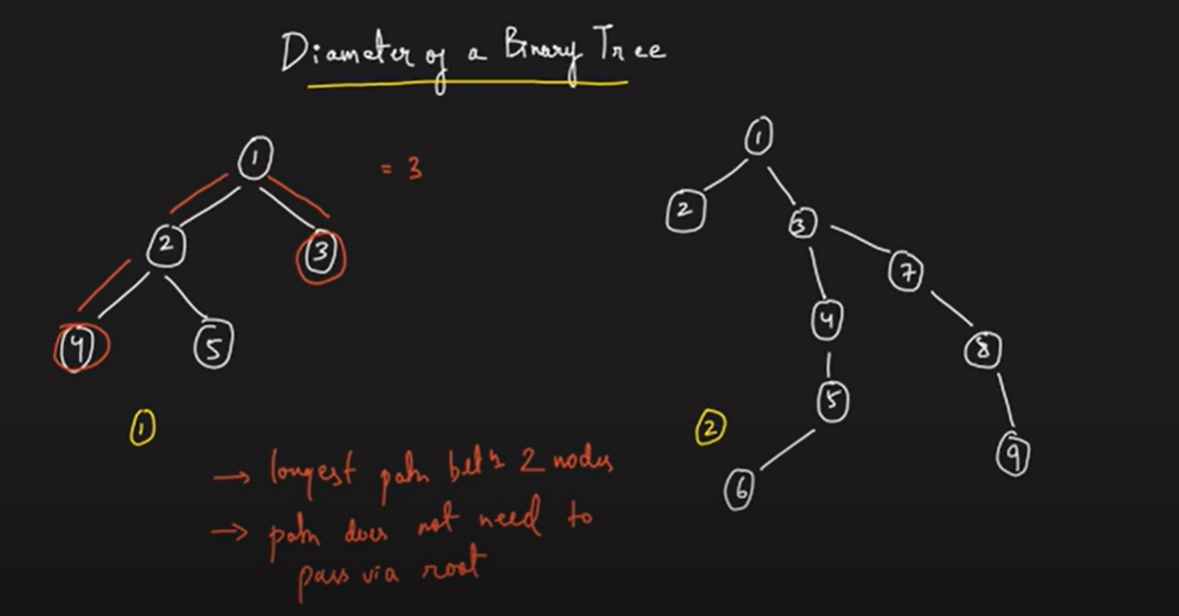 Diameter of a Binary Tree
1
= 3
2
3
4
5
1
1
2
3
7
4
8
5
9
6
2
→ longest path betn 2 nodes
→ path does not need to
pass via root